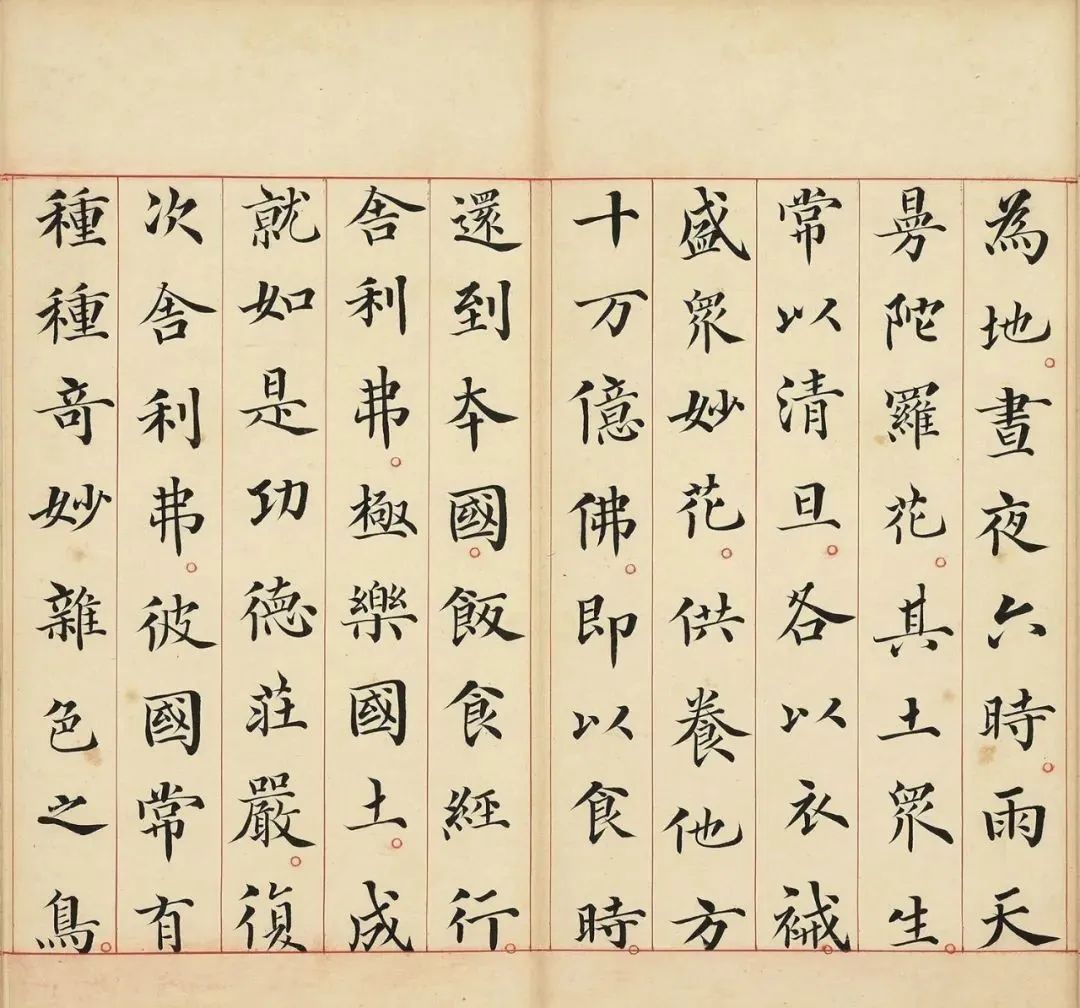 為地。晝夜六時。雨天
曼陀羅花。其土眾生。
常以清旦。各以衣祴。
盛眾妙花。供養他方
十万億佛。即以食時。
還到本國。飯食經行。
舍利弗。極樂國土。成
就如是功德莊嚴。復
次舍利弗。彼國常有
種種奇妙雜色之鳥。